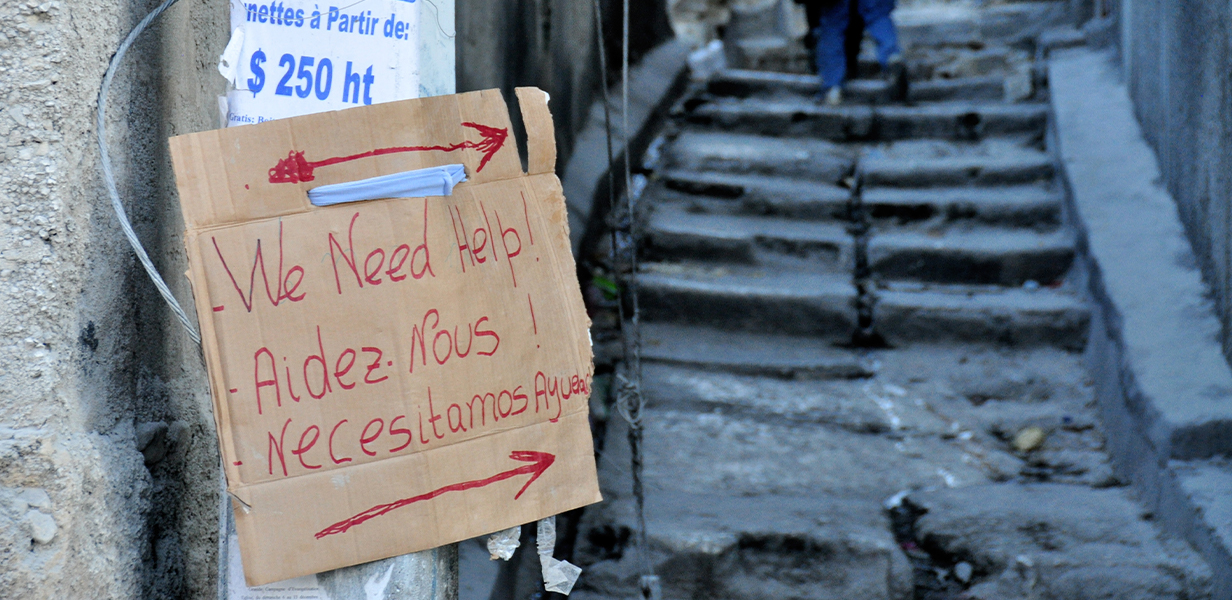 nettes à Partir de:
$ 250 ht
Gratis:
- We Need Help!
- Aidez-Nous !
- Necesitamos Ayuda